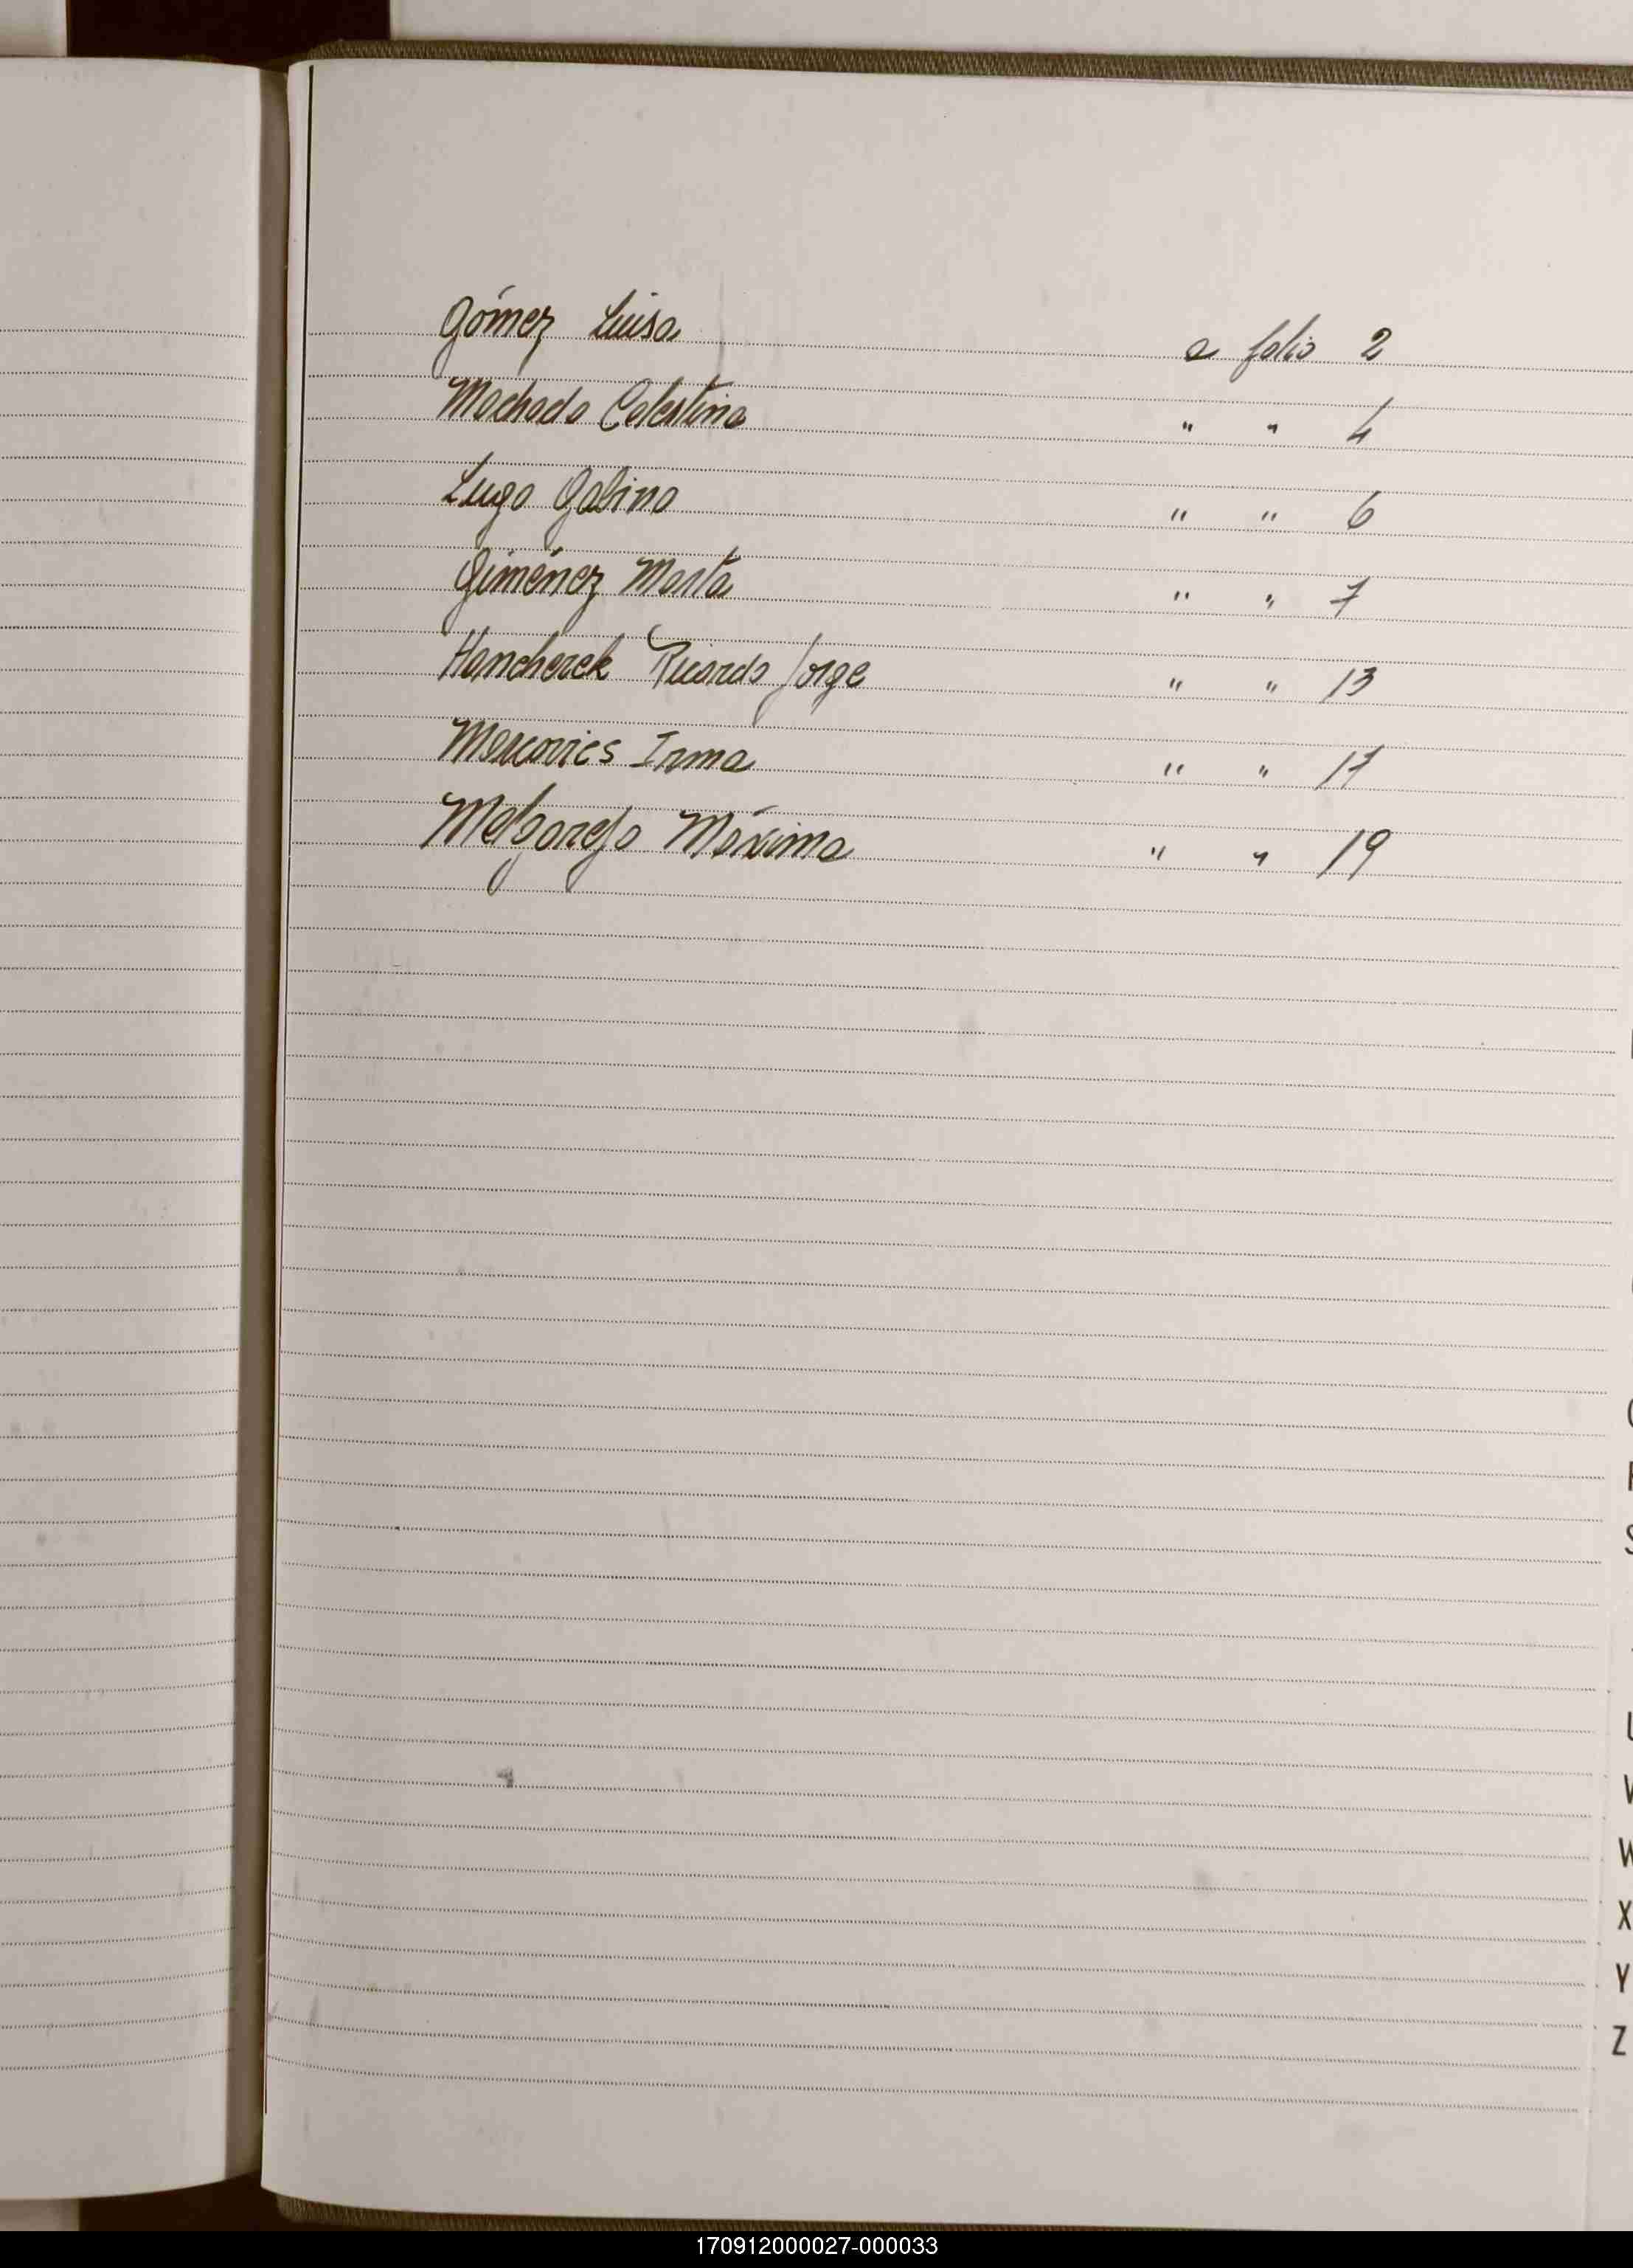 Gómez Luisa a folio 2
Machado Celestina " " 4
Lugo Gabino " " 6
Giménez Marta " " 7
Hancherek Ricardo Jorge " " 13
Mercovics Irma " " 17
Melgarejo Máxima " " 19
S
W
X
Y
Z
170912000027-000033